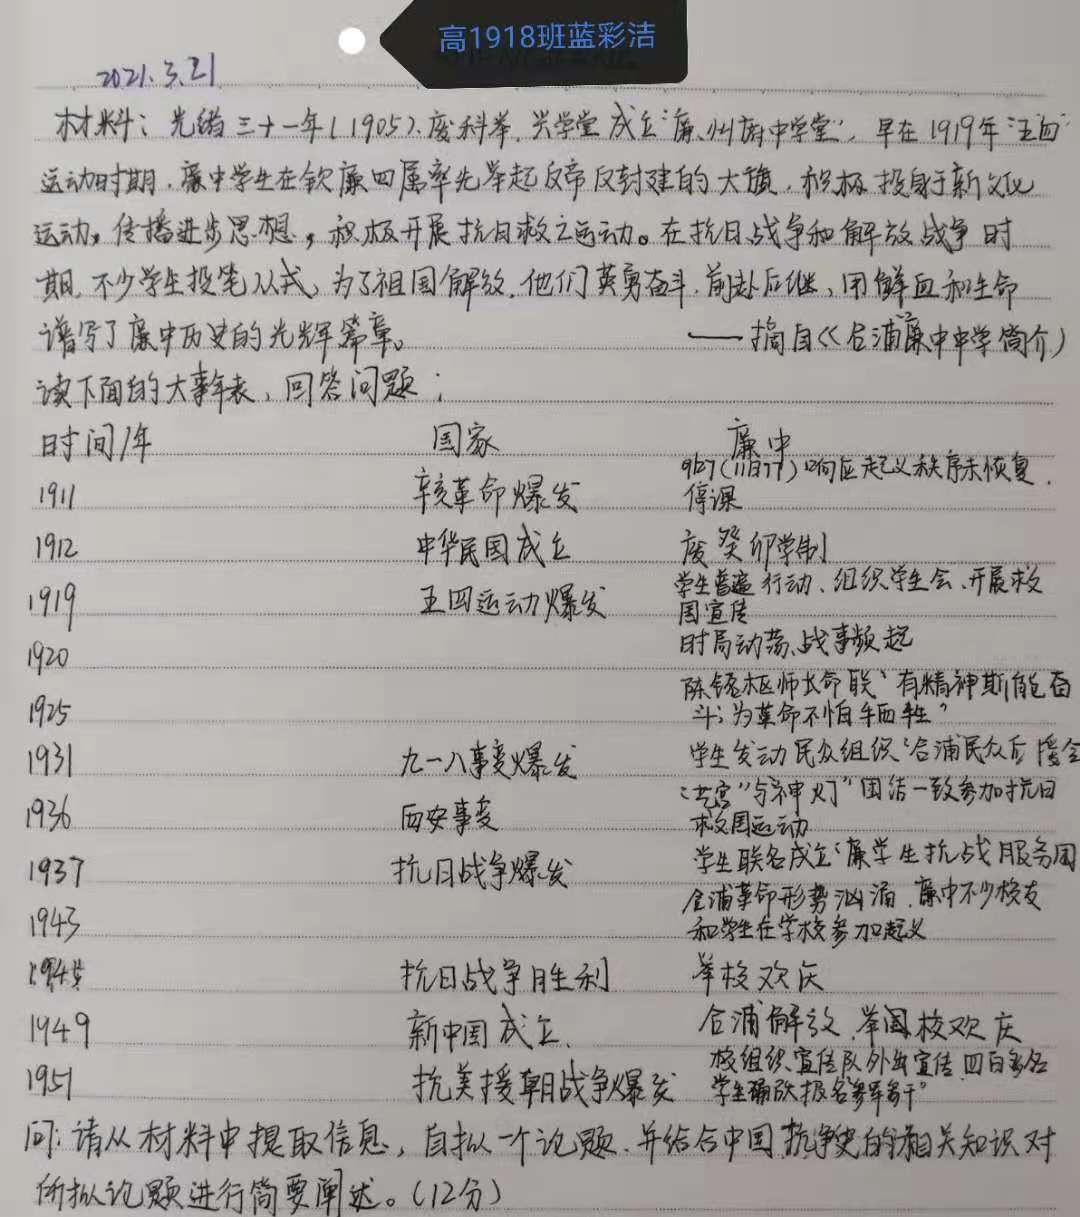 高1918班蓝彩洁
2021.3.21
材料：光绪三十一年(1905).废科举,兴学堂成立"廉州府中学堂"，早在1919年"五四"
运动时期，廉中学生在钦廉四属率先举起反帝反封建的大旗，积极投身于新文化
运动，传播进步思想，积极开展抗日救亡运动。在抗日战争和解放战争时
期，不少学生投笔从戎，为了祖国解放，他们英勇奋斗，前赴后继，用鲜血和生命
谱写了廉中历史的光辉篇章。 ——摘自《合浦廉中中学简介》
读下面的大事年表，回答问题：
时间/年 国家 廉中
1911 辛亥革命爆发 响应起义秩序未恢复.
停课
1912 中华民国成立 废癸卯学制
1919 五四运动爆发 学生普遍行动、组织学生会、开展救
国宣传
1920 时局动荡、战事频起
1925 陈铭枢师长命联"有精神斯能奋
斗；为革命不怕牺牲"
1931 九一八事变爆发 学生发动民众组织"合浦民众后援会
1936 西安事变 "与神灯"团结一致参加抗日
救国运动
1937 抗日战争爆发 学生联名成立"廉学生抗战服务团
1943 合浦革命形势汹涌，廉中不少校友
和学生在学校参加起义
1945 抗日战争胜利 举校欢庆
1949 新中国成立. 合浦解放,举国校欢庆
1951 抗美援朝战争爆发 校组织宣传队外出宣传,四百多名
学生踊跃报名"参军参干"
问：请从材料中提取信息，自拟一个论题，并结合中国抗争史的相关知识对
所拟论题进行简要阐述。(12分)